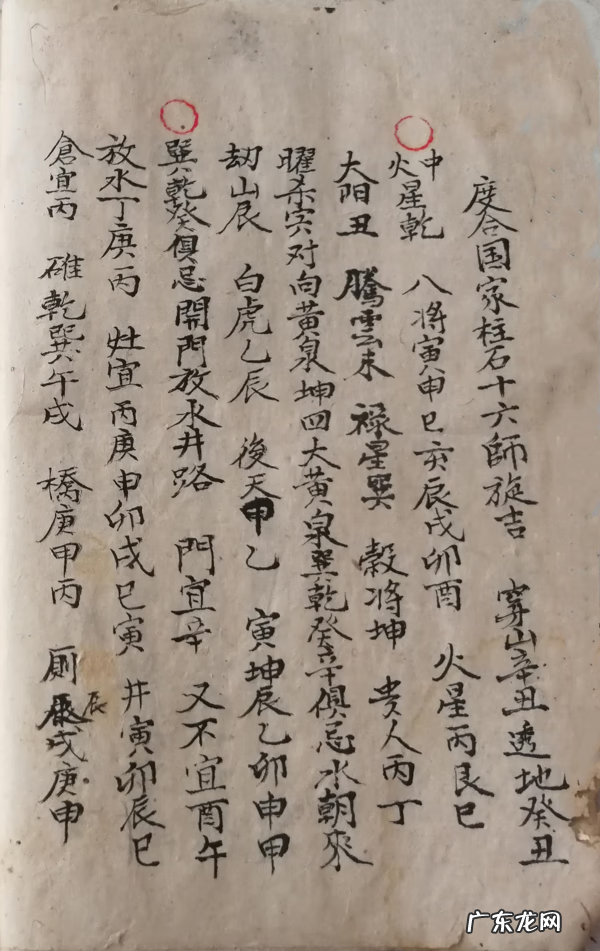 度合国家柱石十六師旋吉 穿山辛丑透地癸丑
中火星乾 八将寅申巳亥辰戌卯酉 火星丙艮巳
大阳丑 騰雲未 禄星巽 穀将坤 贵人丙丁
曜杀寅对向黄泉坤四大黄泉巽乾癸辛俱忌水朝來
劫山辰 白虎乙辰 後天申乙 寅坤辰乙卯申甲
巽乾癸俱忌開門放水井路 門宜辛 又不宜酉午
放水丁庚丙 灶宜丙庚申卯戌巳寅 井寅卯辰巳
倉宜丙 碓乾巽午戌 橋庚甲丙 厠辰戌庚申
广东龙网